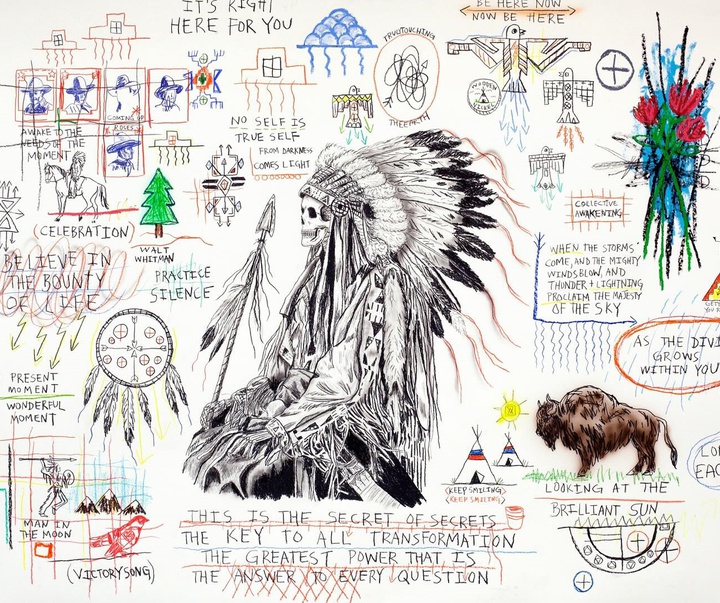 IT'S RIGHT
HERE FOR YOU
BE HERE NOW
NOW BE HERE
TRUE TOUCHING
THE EARTH
NO SELF IS
TRUE SELF
FROM DARKNESS
COMES LIGHT
COMING UP
ROSES
AWAKE TO THE
NEEDS OF THE
MOMENT
WOODEN
NICKEL
COLLECTIVE
AWAKENING
(CELEBRATION)
WALT
WHITMAN
BELIEVE IN
THE BOUNTY
OF LIFE
PRACTICE
SILENCE
WHEN THE STORMS
COME, AND THE MIGHTY
WINDS BLOW, AND
THUNDER + LIGHTNING
PROCLAIM THE MAJESTY
OF THE SKY
AS THE DIVI
GROWS
WITHIN YOU
PRESENT
MOMENT
WONDERFUL
MOMENT
(KEEP SMILING)
(KEEP SMILING)
LOOKING AT THE
BRILLIANT SUN
EAC
MAN IN
THE MOON
(VICTORY SONG)
THIS IS THE SECRET OF SECRETS
THE KEY TO ALL TRANSFORMATION
THE GREATEST POWER THAT IS
THE ANSWER TO EVERY QUESTION